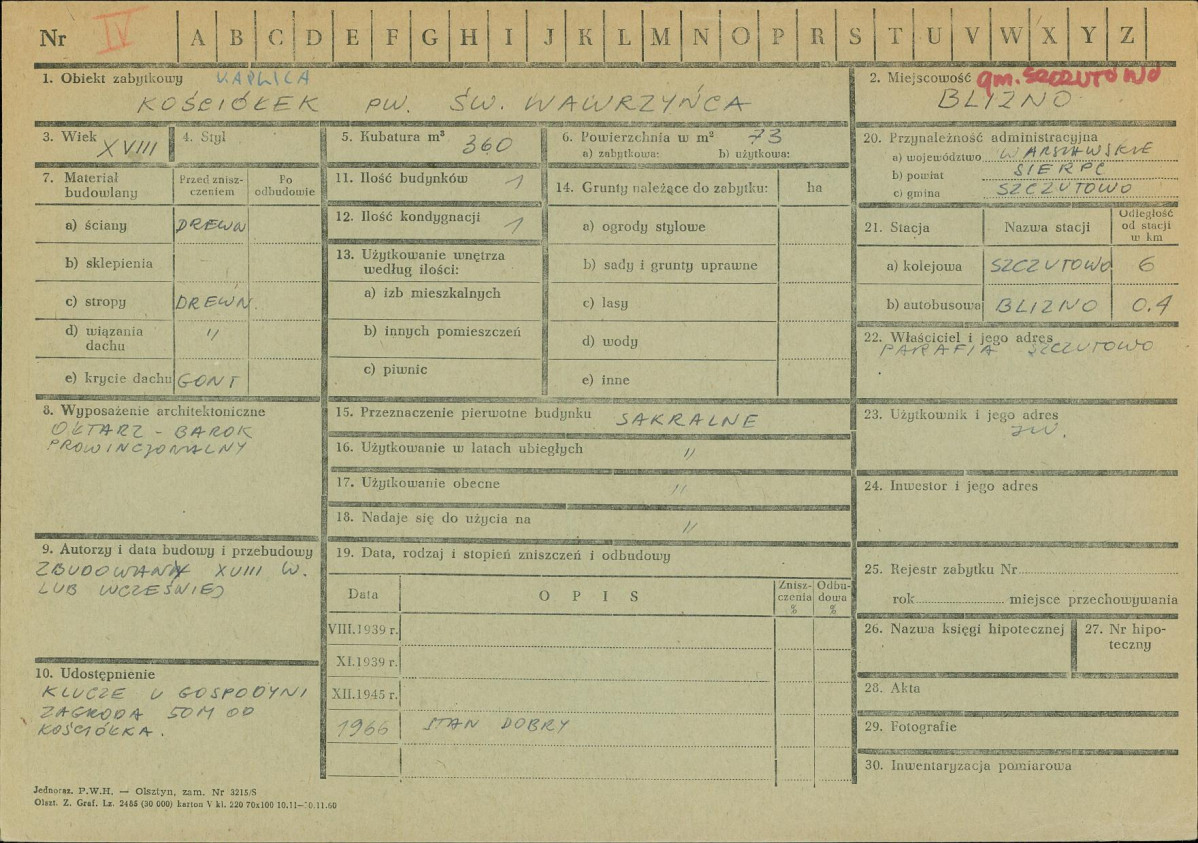 Nr IV A B C D E F G H I J K L M N O P R S T U V W X Y Z
1. Obiekt zabytkowy KAPLICA
KOŚCIÓŁEK PW. ŚW. WAWRZYŃCA
2. Miejscowość gm. SZCZUTOWO
BLIZNO
3. Wiek XVIII
4. Styl
5. Kubatura m³ 360
6. Powierzchnia w m² 73
a) zabytkowa: b) użytkowa:
7. Materiał budowlany
Przed znisz-
czeniem
Po
odbudowie
a) ściany DREWN
b) sklepienia
c) stropy DREWN.
d) wiązania
dachu "
e) krycie dachu GONT
8. Wyposażenie architektoniczne
OŁTARZ - BAROK
PROWINCJONALNY
9. Autorzy i data budowy i przebudowy
ZBUDOWANA XVIII W.
LUB WCZEŚNIEJ
10. Udostępnienie
KLUCZE U GOSPODYNI
ZAGRODA 50M OD
KOŚCIÓŁKA.
11. Ilość budynków 1
12. Ilość kondygnacji 1
13. Użytkowanie wnętrza
według ilości:
a) izb mieszkalnych
b) innych pomieszczeń
c) piwnic
14. Grunty należące do zabytku: ha
a) ogrody stylowe
b) sady i grunty uprawne
c) lasy
d) wody
e) inne
15. Przeznaczenie pierwotne budynku SAKRALNE
16. Użytkowanie w latach ubiegłych "
17. Użytkowanie obecne "
18. Nadaje się do użycia na "
19. Data, rodzaj i stopień zniszczeń i odbudowy
Data O P I S
Znisz-
czenia
%
Odbu-
dowa
%
VIII.1939 r.
XI.1939 r.
XII.1945 r.
1966 STAN DOBRY
20. Przynależność administracyjna
a) województwo WARSZAWSKIE
b) powiat SIERPC
c) gmina SZCZUTOWO
21. Stacja Nazwa stacji
Odległość
od stacji
w km
a) kolejowa SZCZUTOWO 6
b) autobusowa BLIZNO 0.4
22. Właściciel i jego adres
PARAFIA SZCZUTOWO
23. Użytkownik i jego adres
JW.
24. Inwestor i jego adres
25. Rejestr zabytku Nr
rok miejsce przechowywania
26. Nazwa księgi hipotecznej
27. Nr hipo-
teczny
28. Akta
29. Fotografie
30. Inwentaryzacja pomiarowa
Jednoraz. P.W.H. — Olsztyn, zam. Nr 3215/S
Olszt. Z. Graf. Lz. 2485 (30 000) karton V kl. 220 70x100 10.11—10.11.60